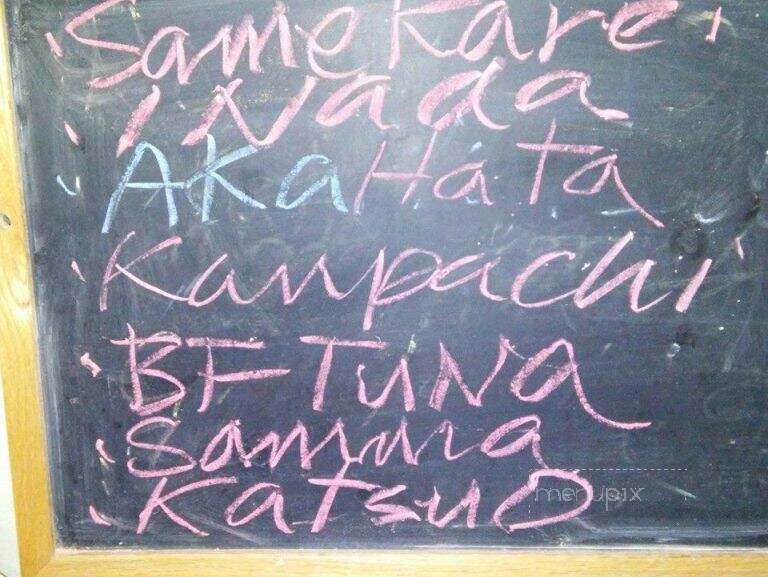 Samekare
INada
AKaHata
Kanpachi
BF TuNa
Sanma
Katsuo
menupix